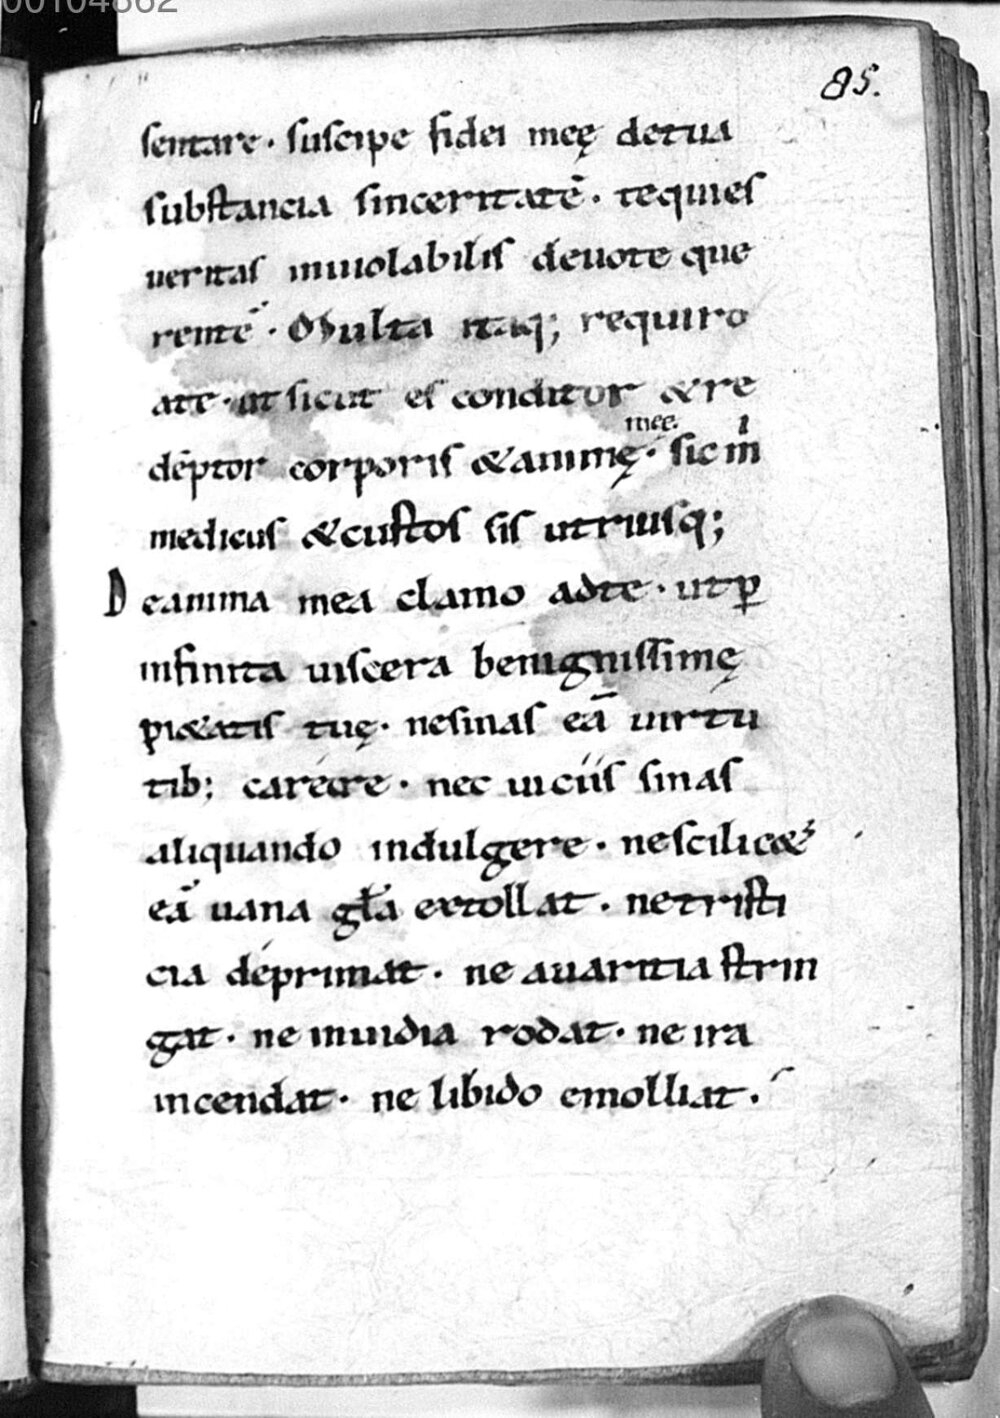 00104862
85.
sentare · suscipe fidei meę detua
substancia sinceritatē · tequies
ueritas inuiolabilis deuote que
rentē · Multa itaq; requiro
ate · ut sicut es conditor & re
mee.
dēptor corporis & animę · sic m̄
medicus & custos sis utriusq;
D eanima mea clamo adte · utꝑ
infinita uiscera benignissimę
pi&atis tuę · nesinas eā uirtu
tib; carere · nec uiciis sinas
aliquando indulgere · nescilic&
eā uana gła extollat · netristi
cia deprimat · ne auaritia strin
gat · ne inuidia rodat · ne ira
incendat · ne libido emolliat ·